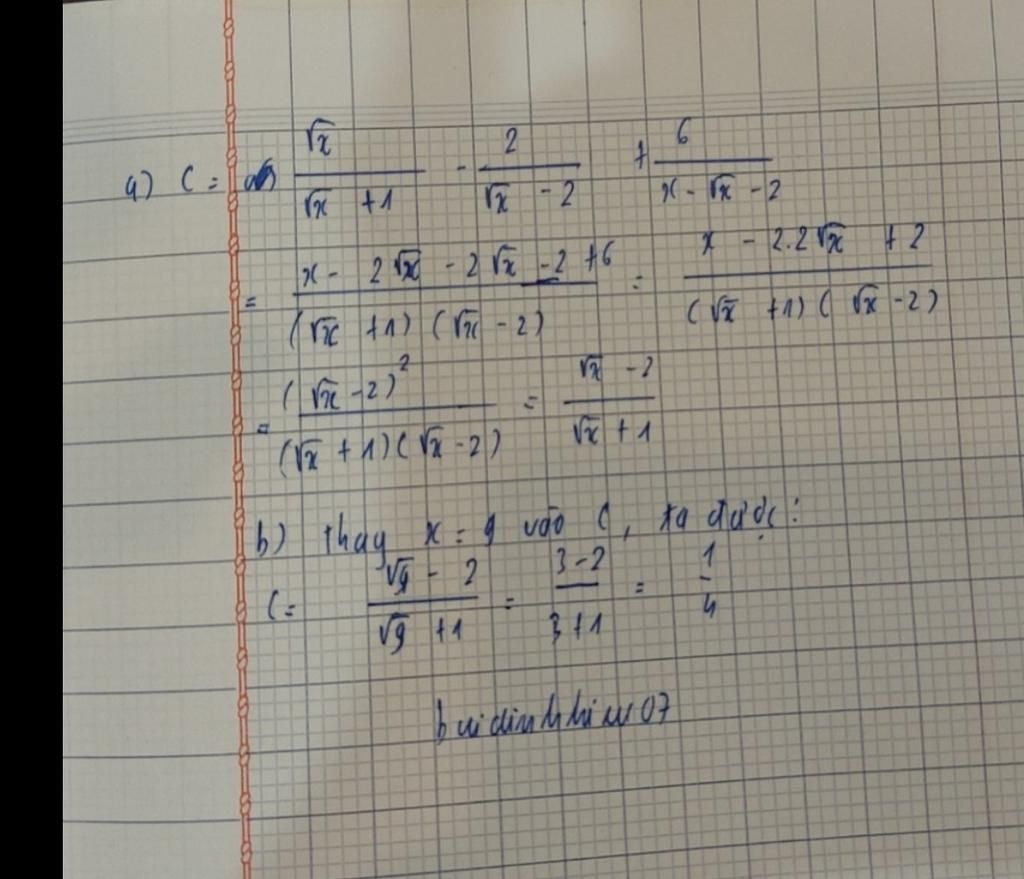 a) C = √x / (√x + 1) - 2 / (√x - 2) + 6 / (x - √x - 2)
= (x - 2√x - 2√x - 2 + 6) / ((√x + 1)(√x - 2)) = (x - 2.2√x + 2) / ((√x + 1)(√x - 2))
= (√x - 2)² / ((√x + 1)(√x - 2)) = (√x - 2) / (√x + 1)
b) thay x = 9 vào C, ta được:
C = (√9 - 2) / (√9 + 1) = (3 - 2) / (3 + 1) = 1 / 4